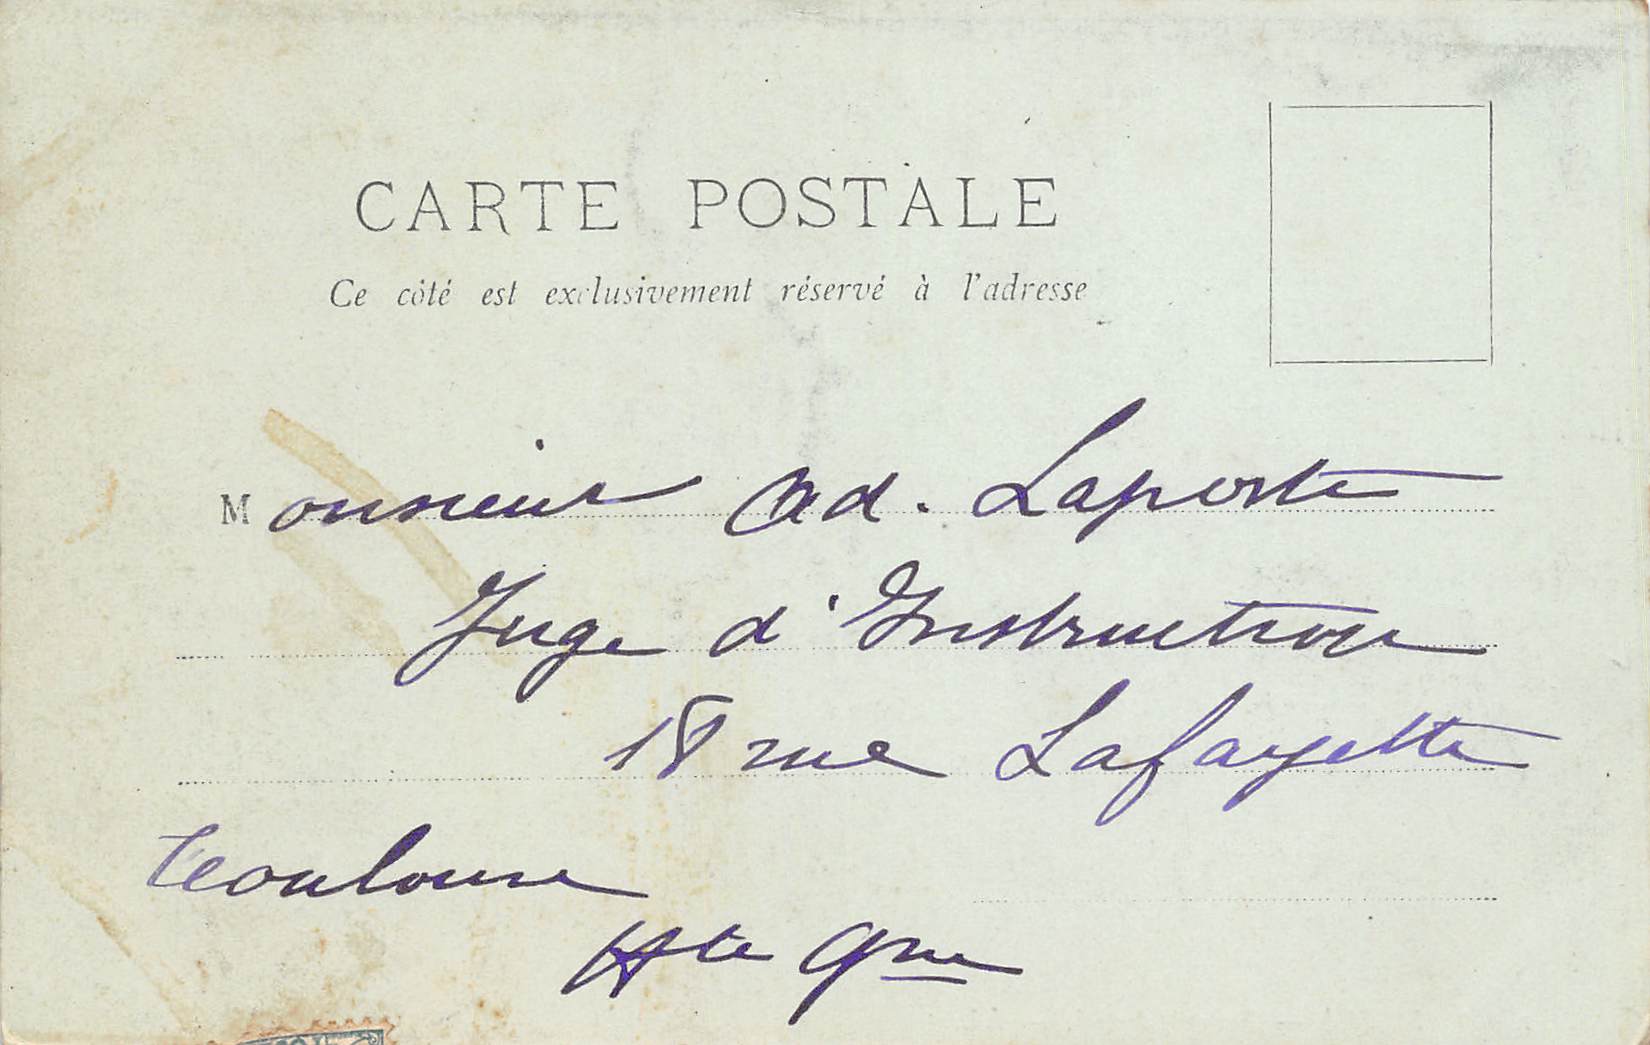 CARTE POSTALE
Ce côté est exclusivement réservé à l'adresse
Monsieur Ad. Laporte
Juge d'Instruction
18 rue Lafayette
Toulouse
Hte Gne